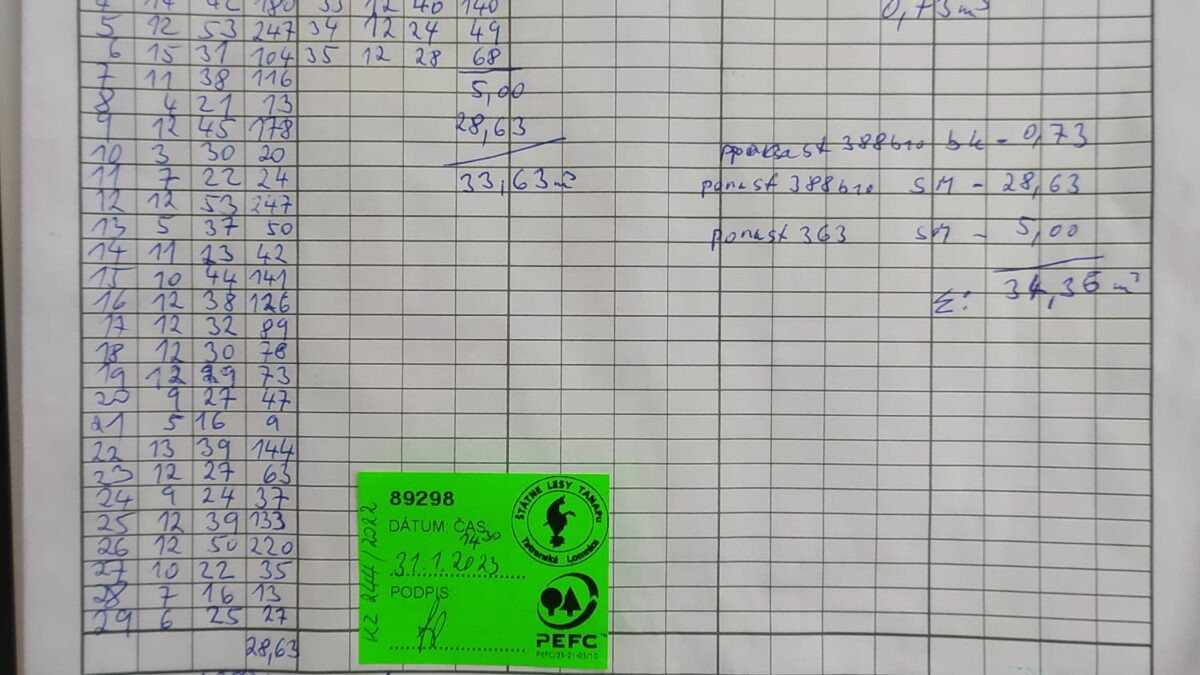 4 14 42 180 33 12 40 140
0,73 m³
5 12 53 247 34 12 24 49
6 15 31 104 35 12 28 68
7 11 38 116
5,00
8 4 21 13
9 12 45 178
28,63
10 3 30 20
11 7 22 24
33,63 m³
12 12 53 247
13 5 37 50
14 11 23 42
15 10 44 141
16 12 38 126
17 12 32 89
18 12 30 78
19 12 29 73
20 9 27 47
21 5 16 9
22 13 39 144
23 12 27 63
24 9 24 37
25 12 39 133
26 12 50 220
27 10 22 35
28 7 16 13
29 6 25 27
28,63
388b10 bk - 0,73
porast 388b10 SM - 28,63
porast 363 SM - 5,00
Σ: 34,36 m³
KZ 244/2022
89298
DÁTUM; ČAS:
14 30
31.1.2023
PODPIS:
ŠTÁTNE LESY TANAPU
Tatranská Lomnica
PEFC™
PEFC/23-21-03/10